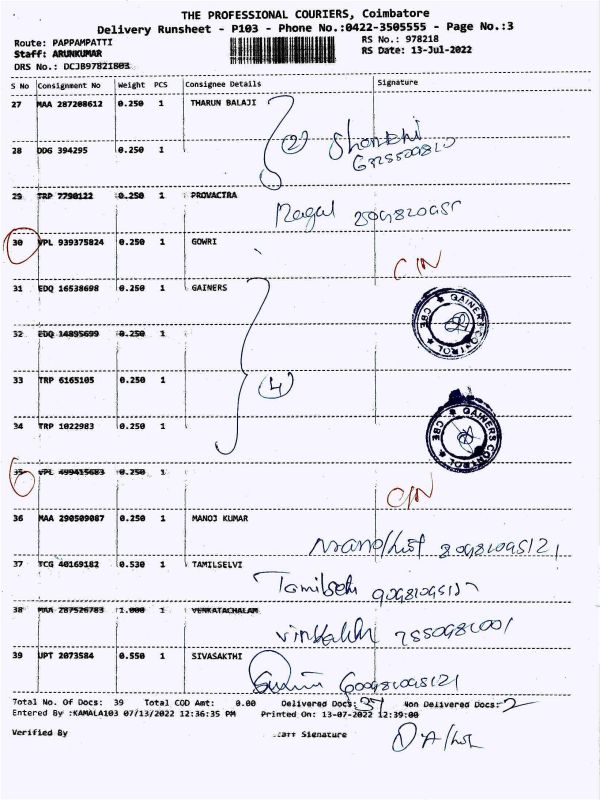 THE PROFESSIONAL COURIERS, Coimbatore
Delivery Runsheet - P103 - Phone No.:0422-3505555 - Page No.:3
Route: PAPPAMPATTI RS No.: 978218
Staff: ARUNKUMAR RS Date: 13-Jul-2022
DRS No.: DCJB97821803
S No Consignment No Weight PCS Consignee Details Signature
27 MAA 287208612 0.250 1 THARUN BALAJI
2
28 DDG 394295 0.250 1
29 TRP 7790122 0.250 1 PROVACTRA
30 VPL 939375824 0.250 1 GOWRI
C/N
31 EDQ 16538698 0.250 1 GAINERS
GAINERS CONTROL CBE
32 EDQ 14895699 0.250 1
33 TRP 6165105 0.250 1
4
34 TRP 1022983 0.250 1
GAINERS CONTROL CBE
35 VPL 499415683 0.250 1
C/N
36 MAA 290509087 0.250 1 MANOJ KUMAR
37 TCG 40169182 0.530 1 TAMILSELVI
38 MAA 287526783 1.000 1 VENKATACHALAM
39 UPT 2073584 0.550 1 SIVASAKTHI
Total No. Of Docs: 39 Total COD Amt: 0.00 Delivered Docs: 37 Non Delivered Docs: 2
Entered By :KAMALA103 07/13/2022 12:36:35 PM Printed On: 13-07-2022 12:39:00
Verified By Staff Signature